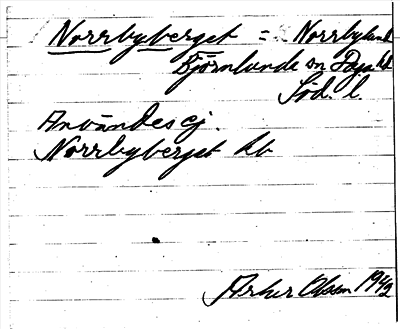 Norrbyberget = Norrbylund
Björnlunda sn Daga hd
Söd. l.
Användes ej.
Norrbyberget kb
Olsson 1942